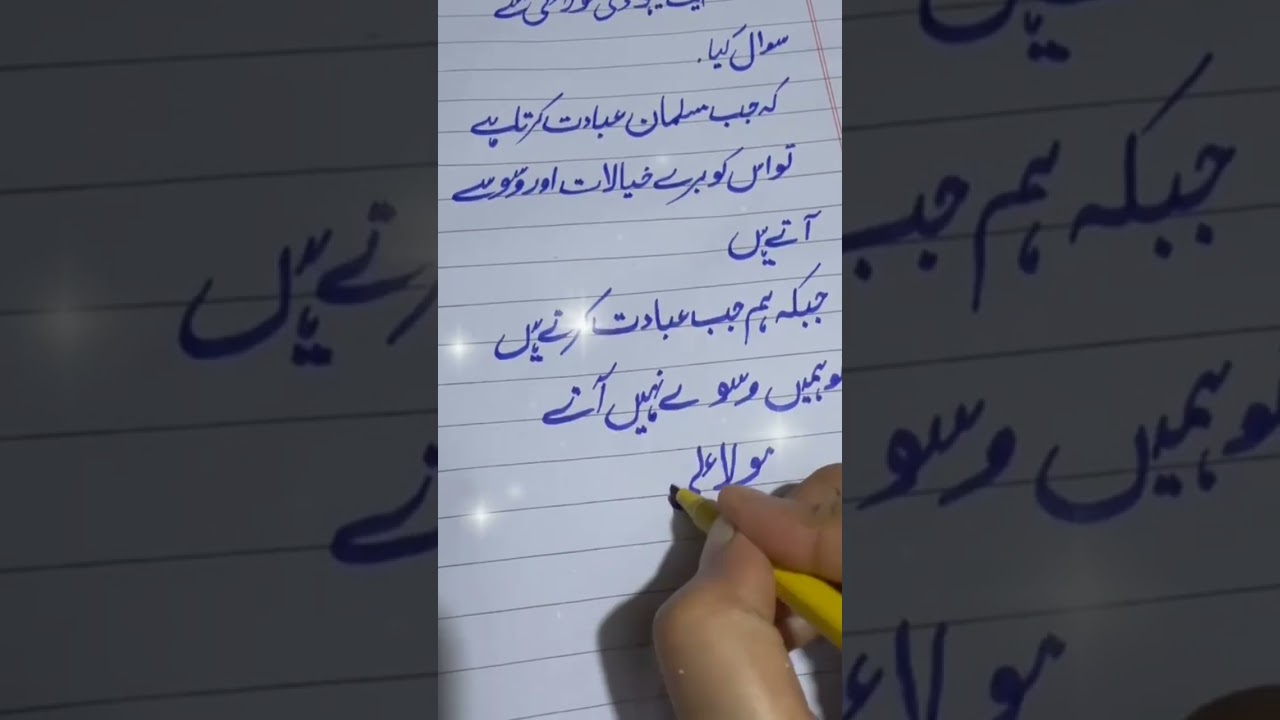 سوال کیا.
کہ جب مسلمان عبادت کرتا ہے
تو اس کو برے خیالات اور وسوسے
آتے ہیں
جبکہ ہم جب عبادت کرتے ہیں
تو ہمیں وسوسے نہیں آتے
مولا علی